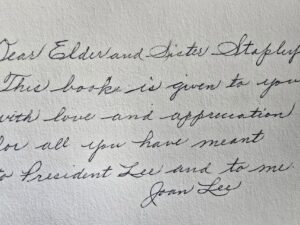 Dear Elder and Sister Stapley
This book is given to you
with love and appreciation
for all you have meant
to President Lee and to me.
Joan Lee